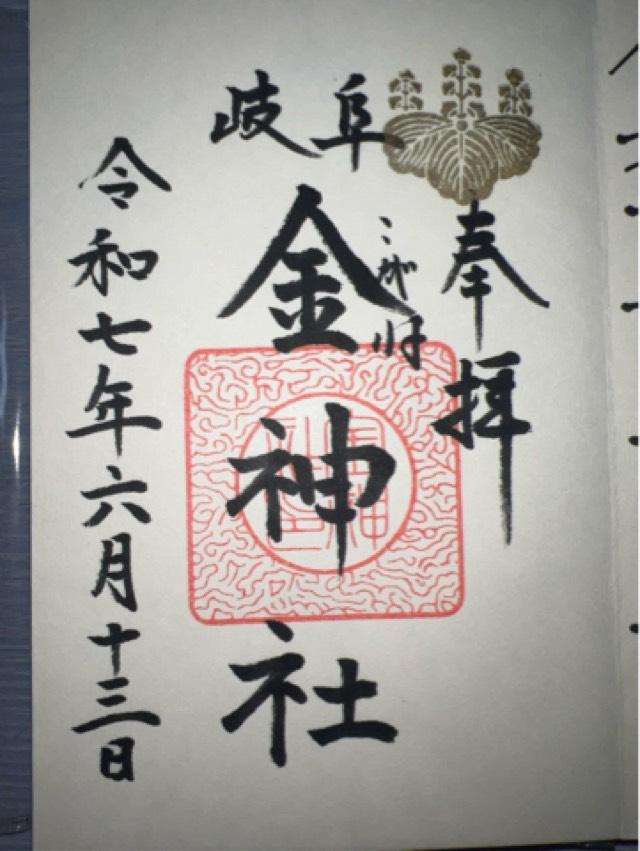 奉拝
岐阜
金神社
こがね
令和七年六月十三日